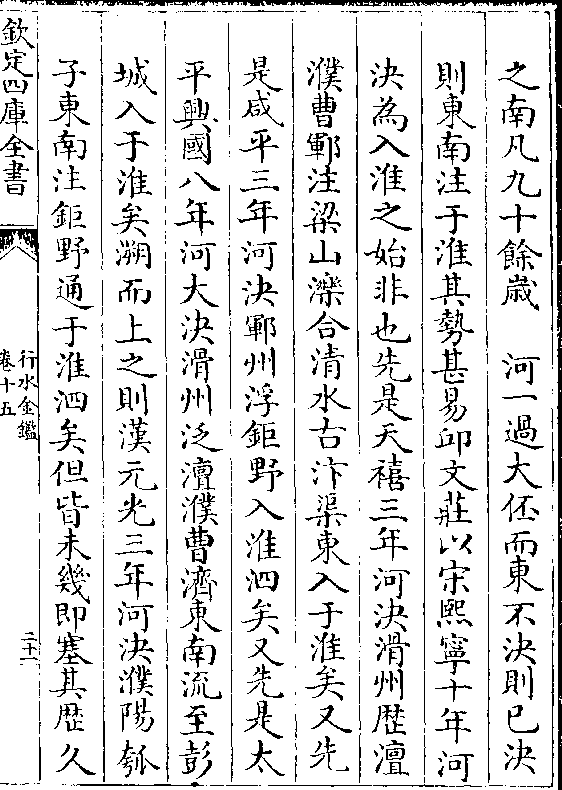 之南凡九十餘歲　河一過大伾而東不決則已決
則東南注于淮其勢甚易邱文莊以宋熙寧十年河
決為入淮之始非也先是天禧三年河決滑州歴澶
濮曹鄆注梁山濼合清水古汴渠東入于淮矣又先
是咸平三年河決鄆州浮鉅野入淮泗矣又先是太
平興國八年河大決滑州泛澶濮曹濟東南流至彭
城入于淮矣溯而上之則漢元光三年河決濮陽瓠
子東南注鉅野通于淮泗矣但皆未幾即塞其歴久
欽定四庫全書
行水金鑑
卷十五
二十一